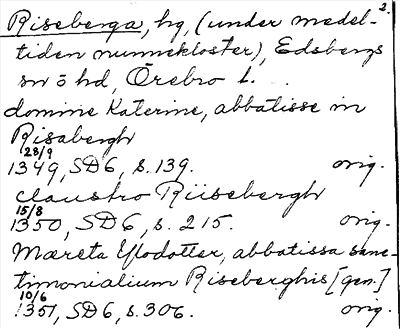 2.
Riseberga, hg, (under medel-
tiden nunnekloster), Edsbergs
sn o hd, Örebro l.
domine Katerine, abbatisse in
Risabergh
28/9
1349, SD6, s. 139. orig.
claustro Riisebergh
15/8
1350, SD6, s. 215. orig.
Mæreta Ulodotter, abbatissa sanc-
timonialium Riseberghis [gen.]
10/6
1351, SD6, s. 306. orig.